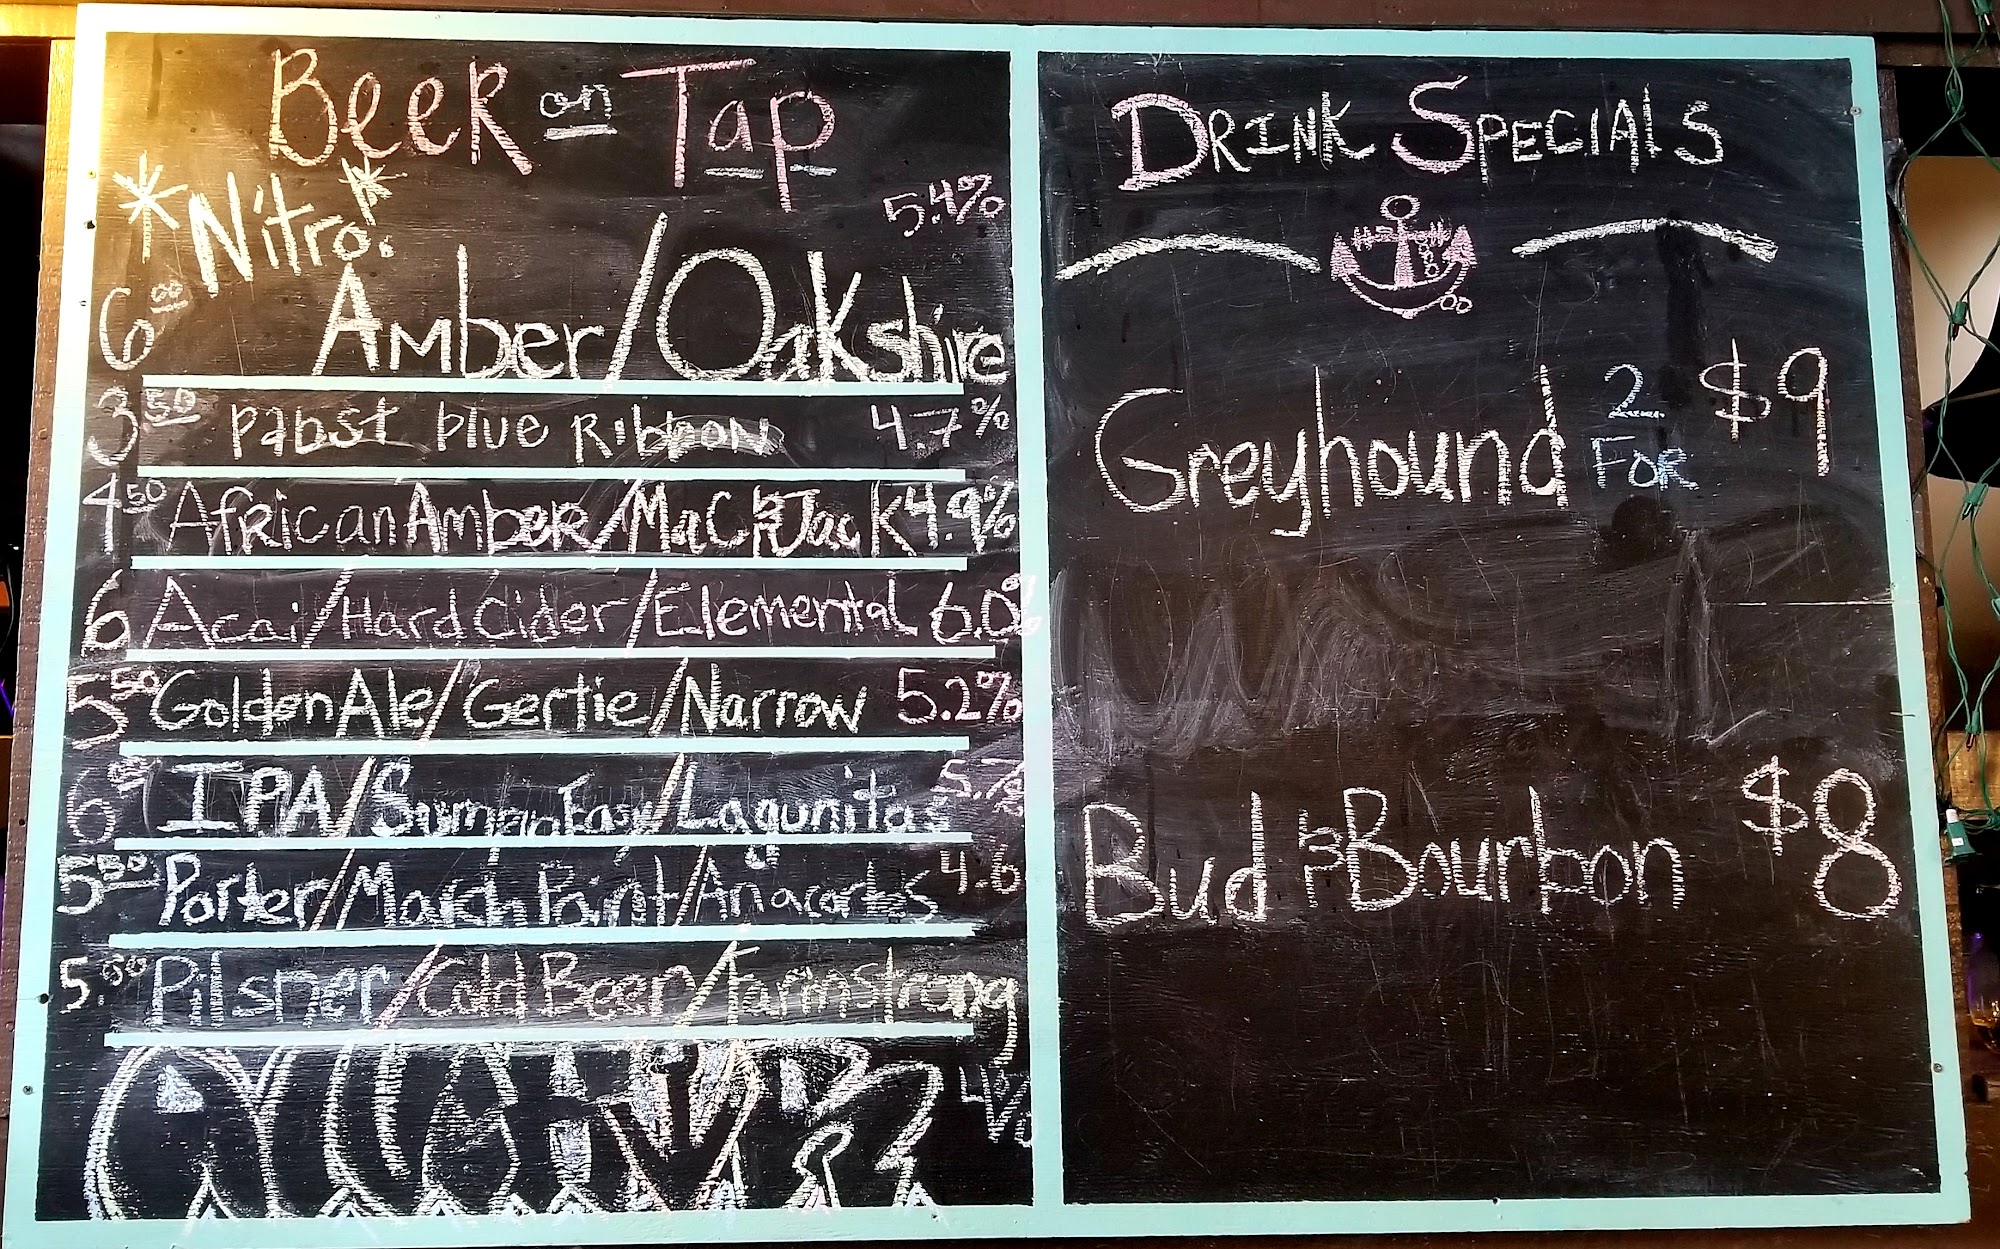 Beer on Tap
*Nitro* : 5.4%
6.00 Amber/Oakshire
3.50 Pabst blue Ribbon 4.7%
4.50 African Amber/Mac & Jack 4.9%
6 Acai/Hard Cider/Elemental 6.0%
5.50 Golden Ale/Gertie/Narrow 5.2%
6.00 IPA/Sumpin Easy/Lagunitas 5.7%
5.50 Porter/March Point/Anacortes 4.6
5.00 Pilsner/Cold Beer/Farmstrong
4%
Drink Specials
Greyhound 2 For $9
Bud & Bourbon $8